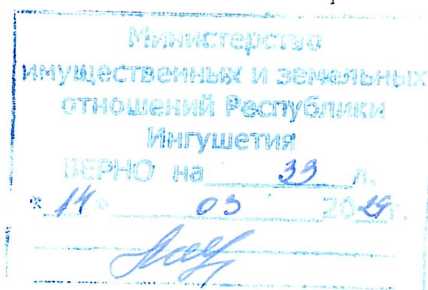 Министерство
имущественных и земельных
отношений Республики
Ингушетия
ВЕРНО на 33 л.
« 14 » 03 20 г.